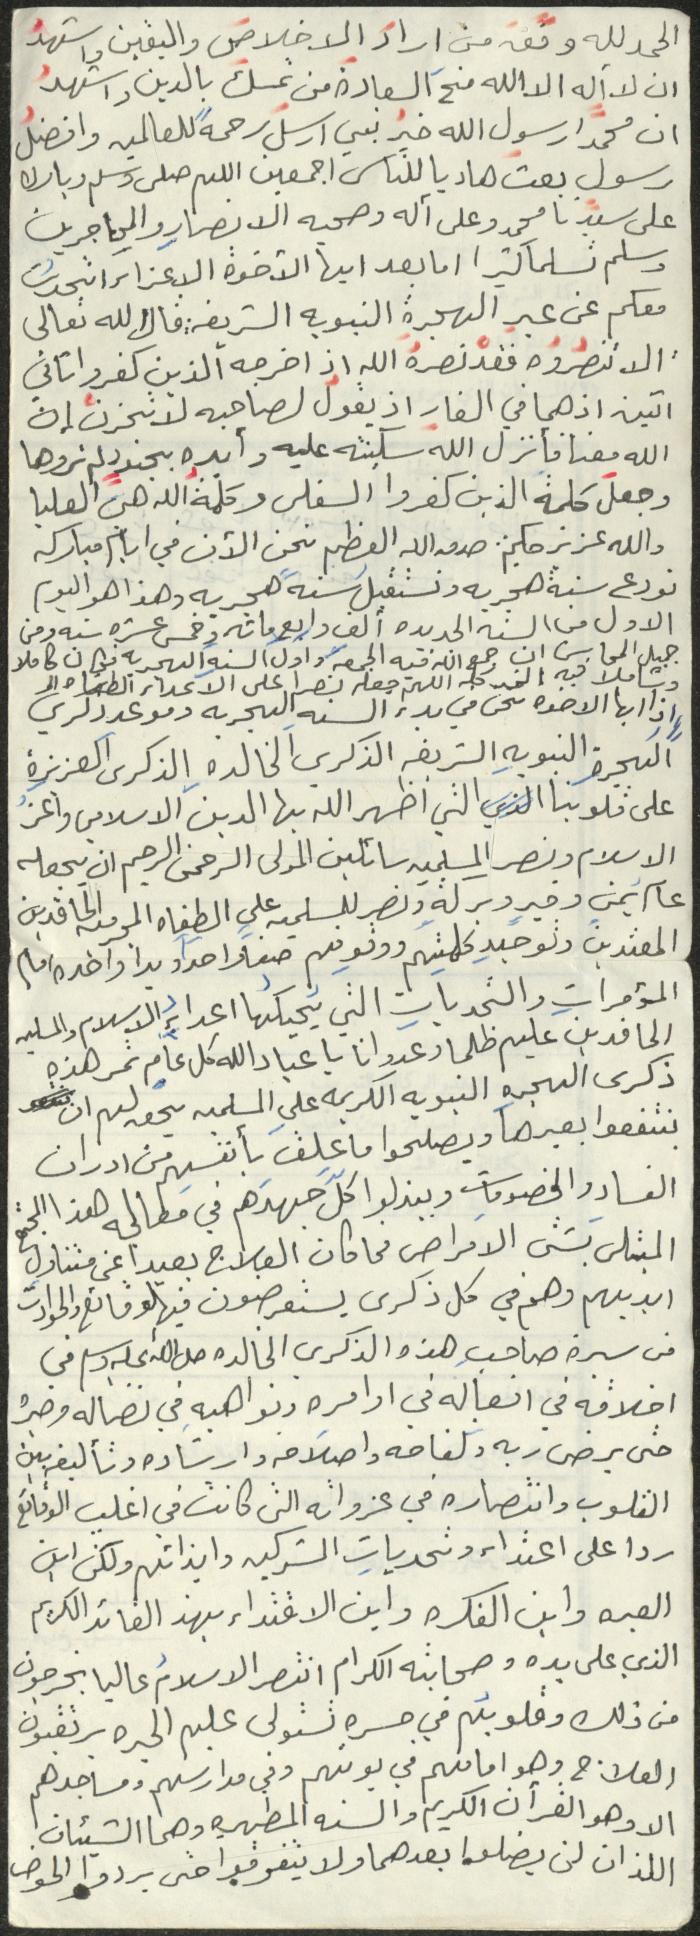 الحمد لله وفق من اراد الاخلاص واليقين واشهد
ان لا أله الا الله منح السعادة من تمسك بالدين واشهد
ان محمدا رسول الله خير نبي ارسل رحمة للعالمين وافضل
رسول بعث هاديا للناس اجمعين اللهم صلى وسلم وبارك
على سيدنا محمد وعلى أله وصحبه الانصار والمهاجرين
وسلم تسلما كثيرا اما بعد ايها الأخوة الاعزاء اتحدث
معكم عن عبر الهجرة النبويه الشريفه قال الله تعالى
الا تنصروه فقد نصره الله اذ اخرجه الذين كفروا ثاني
اثنين اذ هما في الغار اذ يقول لصاحبه لا تحزن إن
الله معنا فأنزل الله سكينته عليه وأيده بجنود لم تروها
وجعل كلمة الذين كفروا السفلى وكلمة الله هى العليا
والله عزيز حكيم صدق الله العظيم نحن الأن في ايام مباركه
نودع سنة هجريه ونستقبل سنة هجريه وهذا هو اليوم
الاول من السنه الجديده ألف واربع مائه وخمس عشره سنه ومن
جميل المحاسن ان جمع الله فيه الجمعه واول السنه الهجريه فكان كاملا
وشاملا فيه الخير كله اللهم جعله نصرا على الاعداء
اذا ايها الاخوه نحن في بدء السنه الهجريه وموعد ذكرى
الهجرة النبويه الشريفه الذكرى الخالده الذكرى العزيزة
على قلوبنا التي أظهر الله بها الدين الاسلامي وأعز
الاسلام ونصر المسلمين سائلين المولى الرحمن الرحيم ان يجعله
عام يمن وخير وبركة ونصر للمسلمين على الطغاه المجرمين الحاقدين
المعتدين وتوحيد كلمتهم ووقوفهم صفا واحدا ويدا واحده امام
المؤمرات والتحديات التي يحيكها اعداء الاسلام والمسلمين
الحاقدين عليهم ظلما وعدوانا يا عباد الله كل عام تمر هذه
ذكرى الهجره النبويه الكريمه على المسلمين يحق لهم ان
ينتفعوا بعبرها ويصلحوا ما علق بأنفسهم من ادران
الفساد والخصومات ويبذلوا كل جهدهم في معالجه هذا المجتمع
المبتلى بشتى الامراض فما كان العلاج بعيدا عن متناول
ايديهم وهم في كل ذكرى يستعرضون فيها الوقائع والحوادث
من سيرة صاحب هذه الذكرى الخالده صلى الله عليه وسلم في
اخلاقه في افعاله في اوامره ونواهيه في نضاله وصبره
حتى يرضى ربه وكفاحه واصلاحه وارشاده وتأليفه بين
القلوب وانتصاره في غزواته التى كانت في اغلب الوقائع
ردا على اعتداء وتحديات المشركين وايذائهم ولكن اين
العبره وأين الفكره واين الاقتداء بهذ القائد الكريم
الذي على يده وصحابته الكرام انتصر الاسلام عاليا يخرجون
من ذلك وقلوبهم في حسره تستولى عليهم الحيره يرتقبون
العلاج وهو امامهم في بوتهم وفي مدارسهم ومساجدهم
الا وهو القرأن الكريم والسنه المطهره وهما الشيئان
اللذان لن يضلوا بعدهما ولا يتفرقوا حتى يردوا الحوض